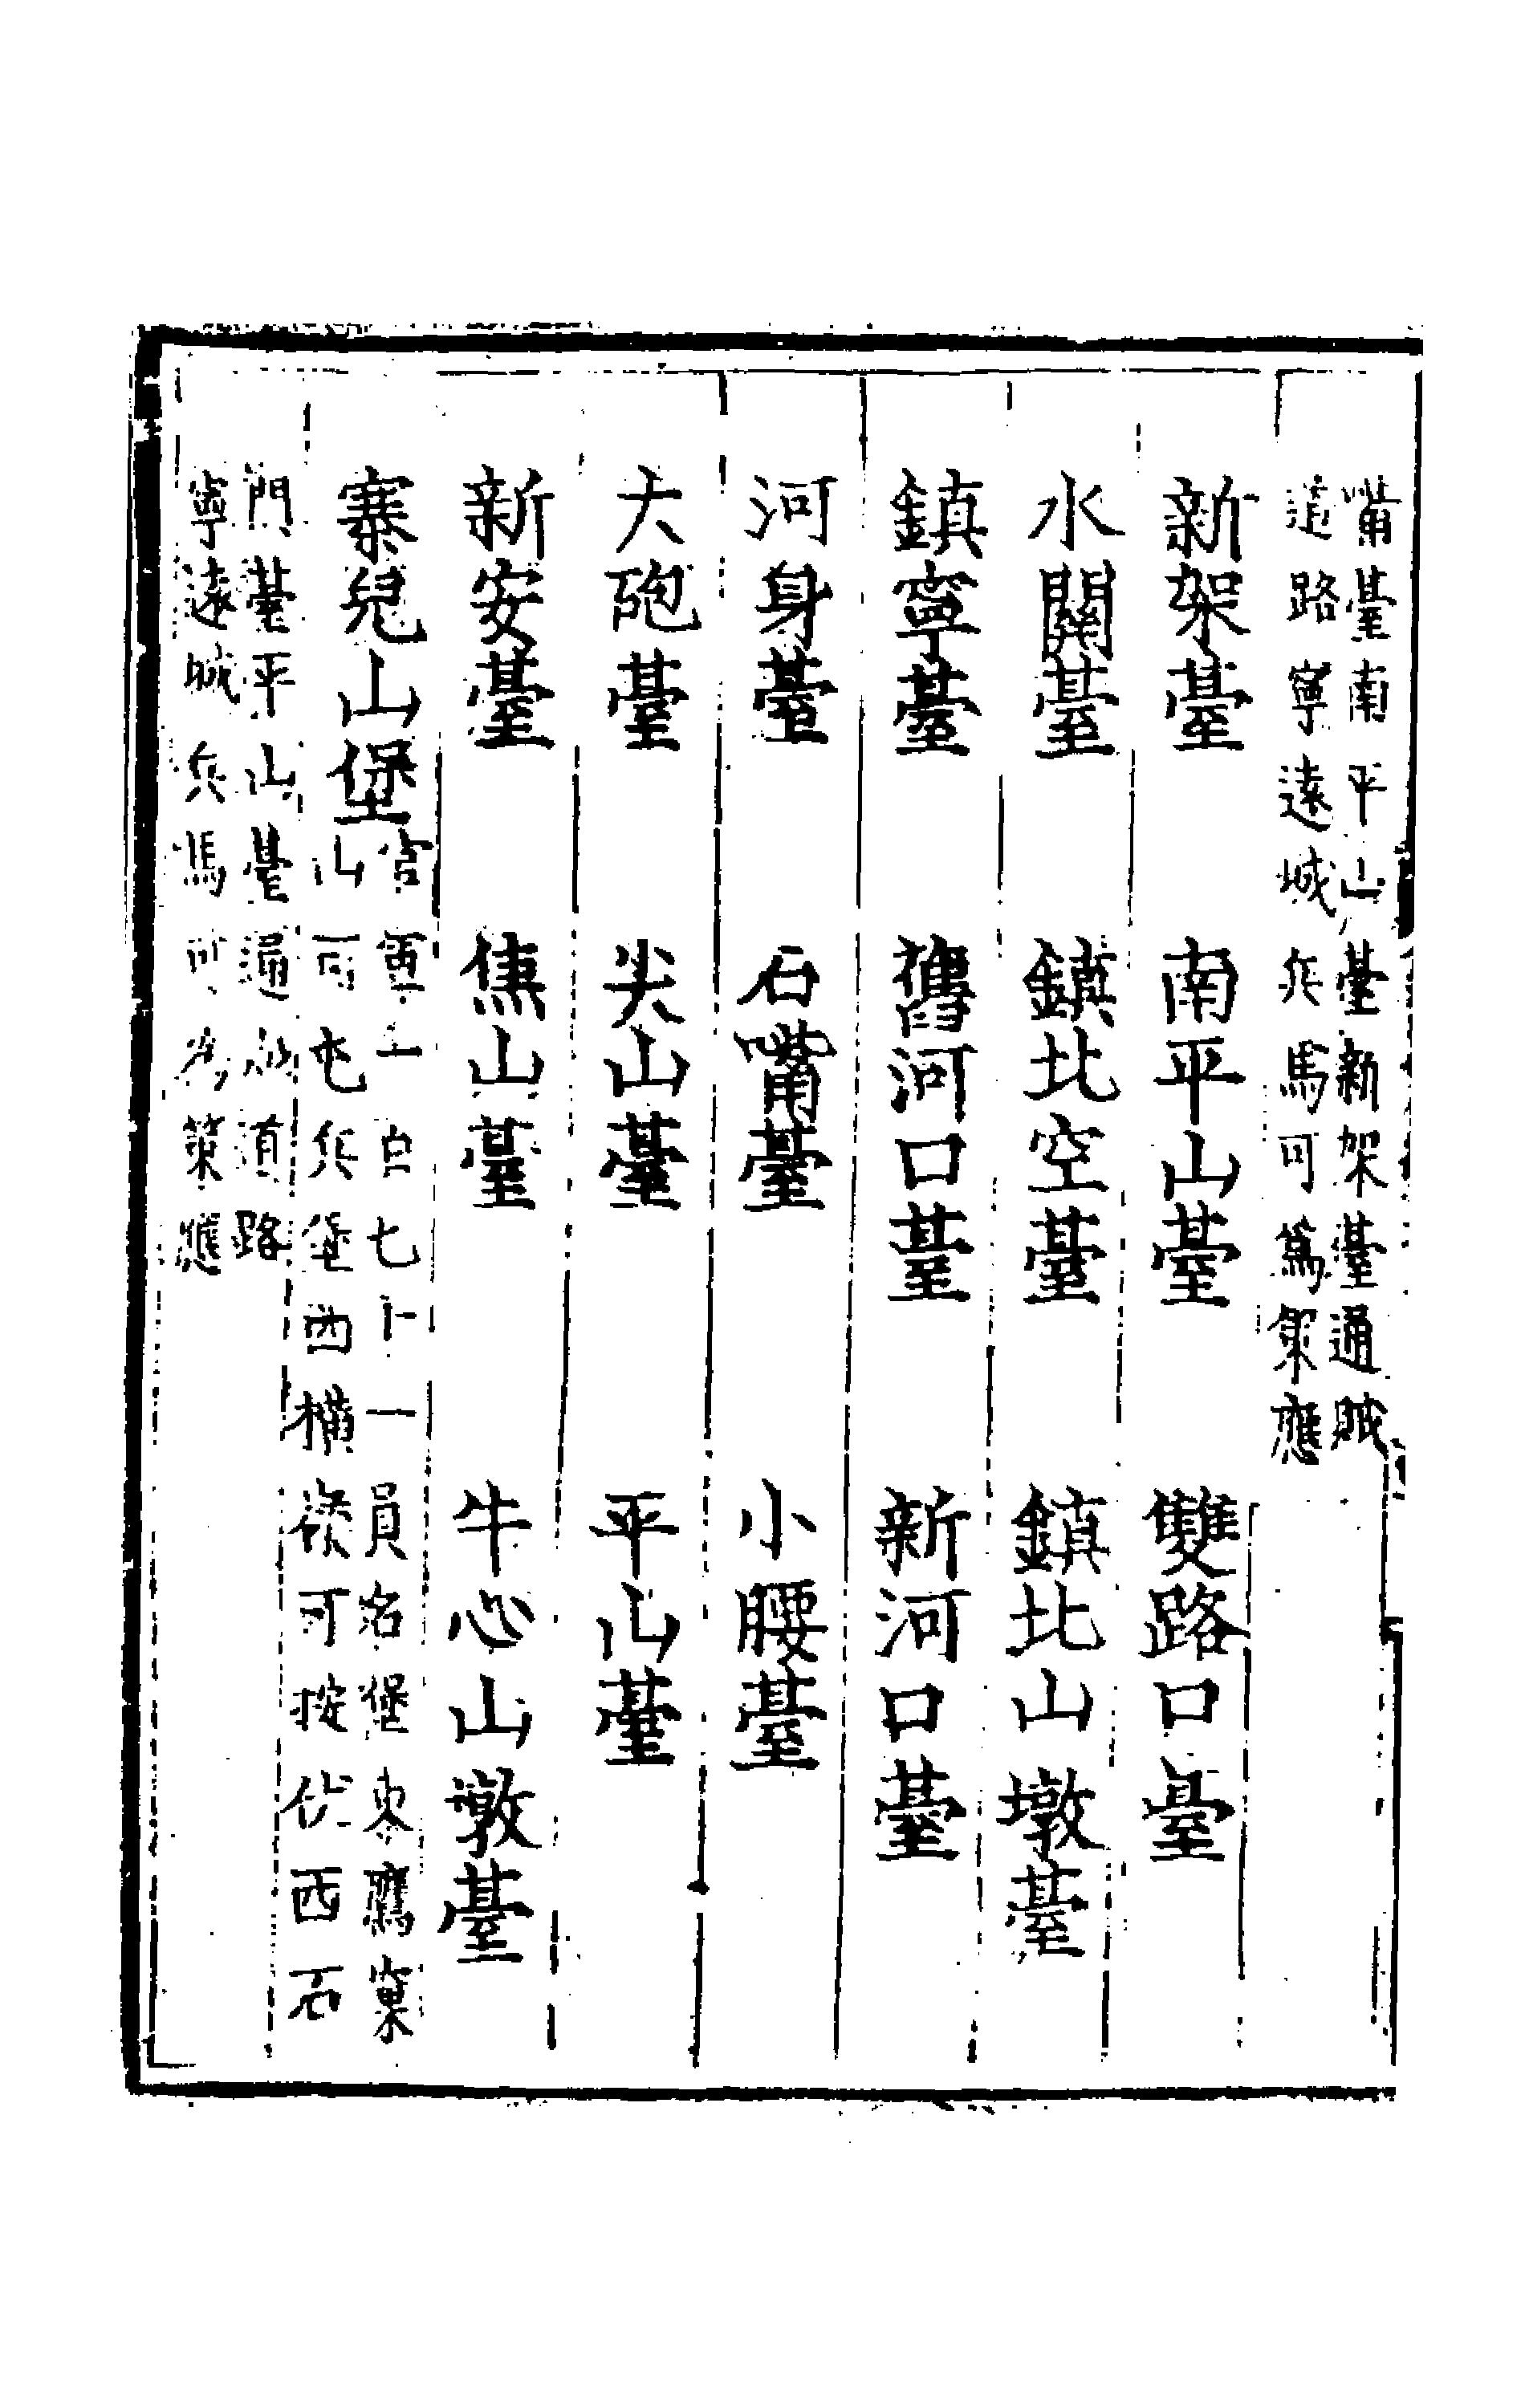 嘴臺南平山臺新架臺通賊
道路寧遠城兵馬可為策應
新架臺　南平山臺　雙路口臺
水關臺　鎮北空臺　鎮北山墩臺
鎮寧臺　舊河口臺　新河口臺
河身臺　石嘴臺　小腰臺
大砲臺　尖山臺　平山臺
新安臺　焦山臺　牛心山墩臺
寨兒山堡
官軍一百七十一員名堡東鷹窠
山可屯兵堡西橫嶺可按伏西石
門臺平山臺通賊道路
寧遠城兵馬可為策應